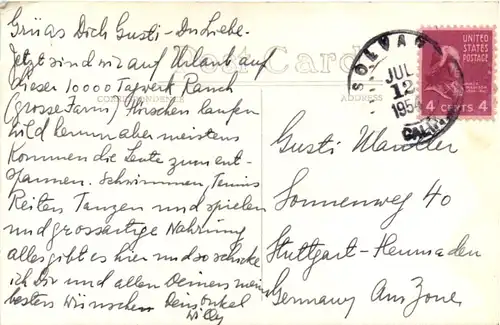 Grüss Dich Gusti - Du Liebe.
Jetzt sind wir auf Urlaub auf
dieser 10000 Tagwerk Ranch
(Grosse Farm) Hirschen laufen
wild herum aber meistens
Kommen die Leute zum ent-
spannen. Schwimmen, Tennis
Reiten Tanzen und spielen
und grossartige Nahrung
alles gibt es hier und so schicke
ich Dir und allen Deinen meine
besten Wünsche Dein Onkel
Willy
Post Card
CORRESPONDENCE
ADDRESS
SOLVANG
JUL
12
1954
CALIF.
UNITED
STATES
POSTAGE
4 CENTS 4
Gusti
Sonnenweg 40
Stuttgart-Heumaden
Germany Am Zone